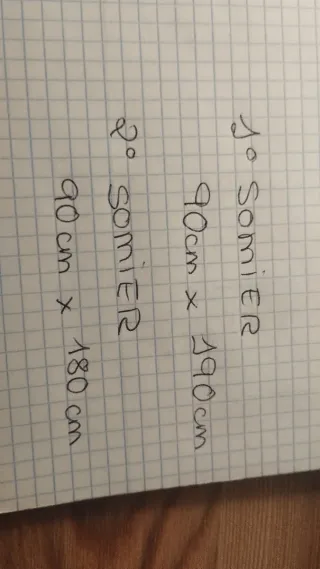 1º SOMiER
90cm x 190cm
2º SOMiER
90cm x 180cm